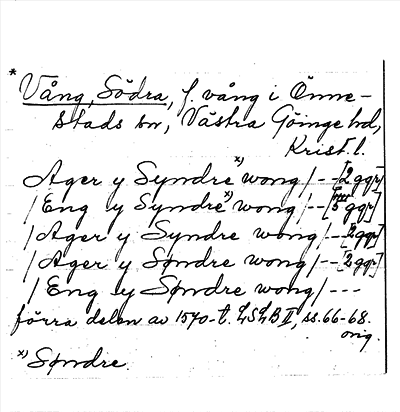 * Vång, Södra, f. vång i Önne-
stads sn, Västra Göinge hd,
Krist. l.
Ager y Syndre x) wong /--[2 ggr]
/Eng y Syndre x) wong /--[5 ggr]
/Ager y Syndre wong/--[2 ggr]
/Ager y Søndre wong/--[2 ggr]
/Eng y Søndre wong/---
förra delen av 1570-t. LSLB II, ss. 66-68.
orig.
x) Søndre.